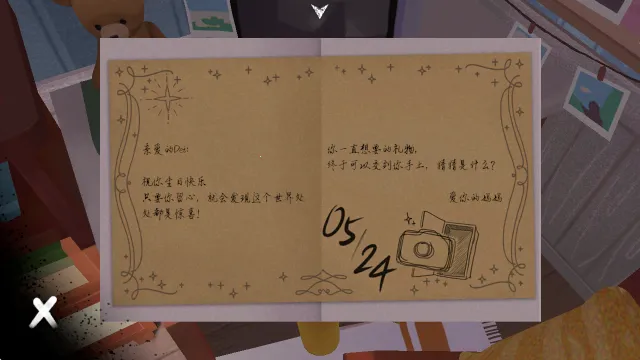 亲爱的Dei:
祝你生日快乐
只要你留心，就会发现这个世界处
处都是惊喜!
你一直想要的礼物,
终于可以交到你手上，猜猜是什么?
爱你的妈妈
05/24